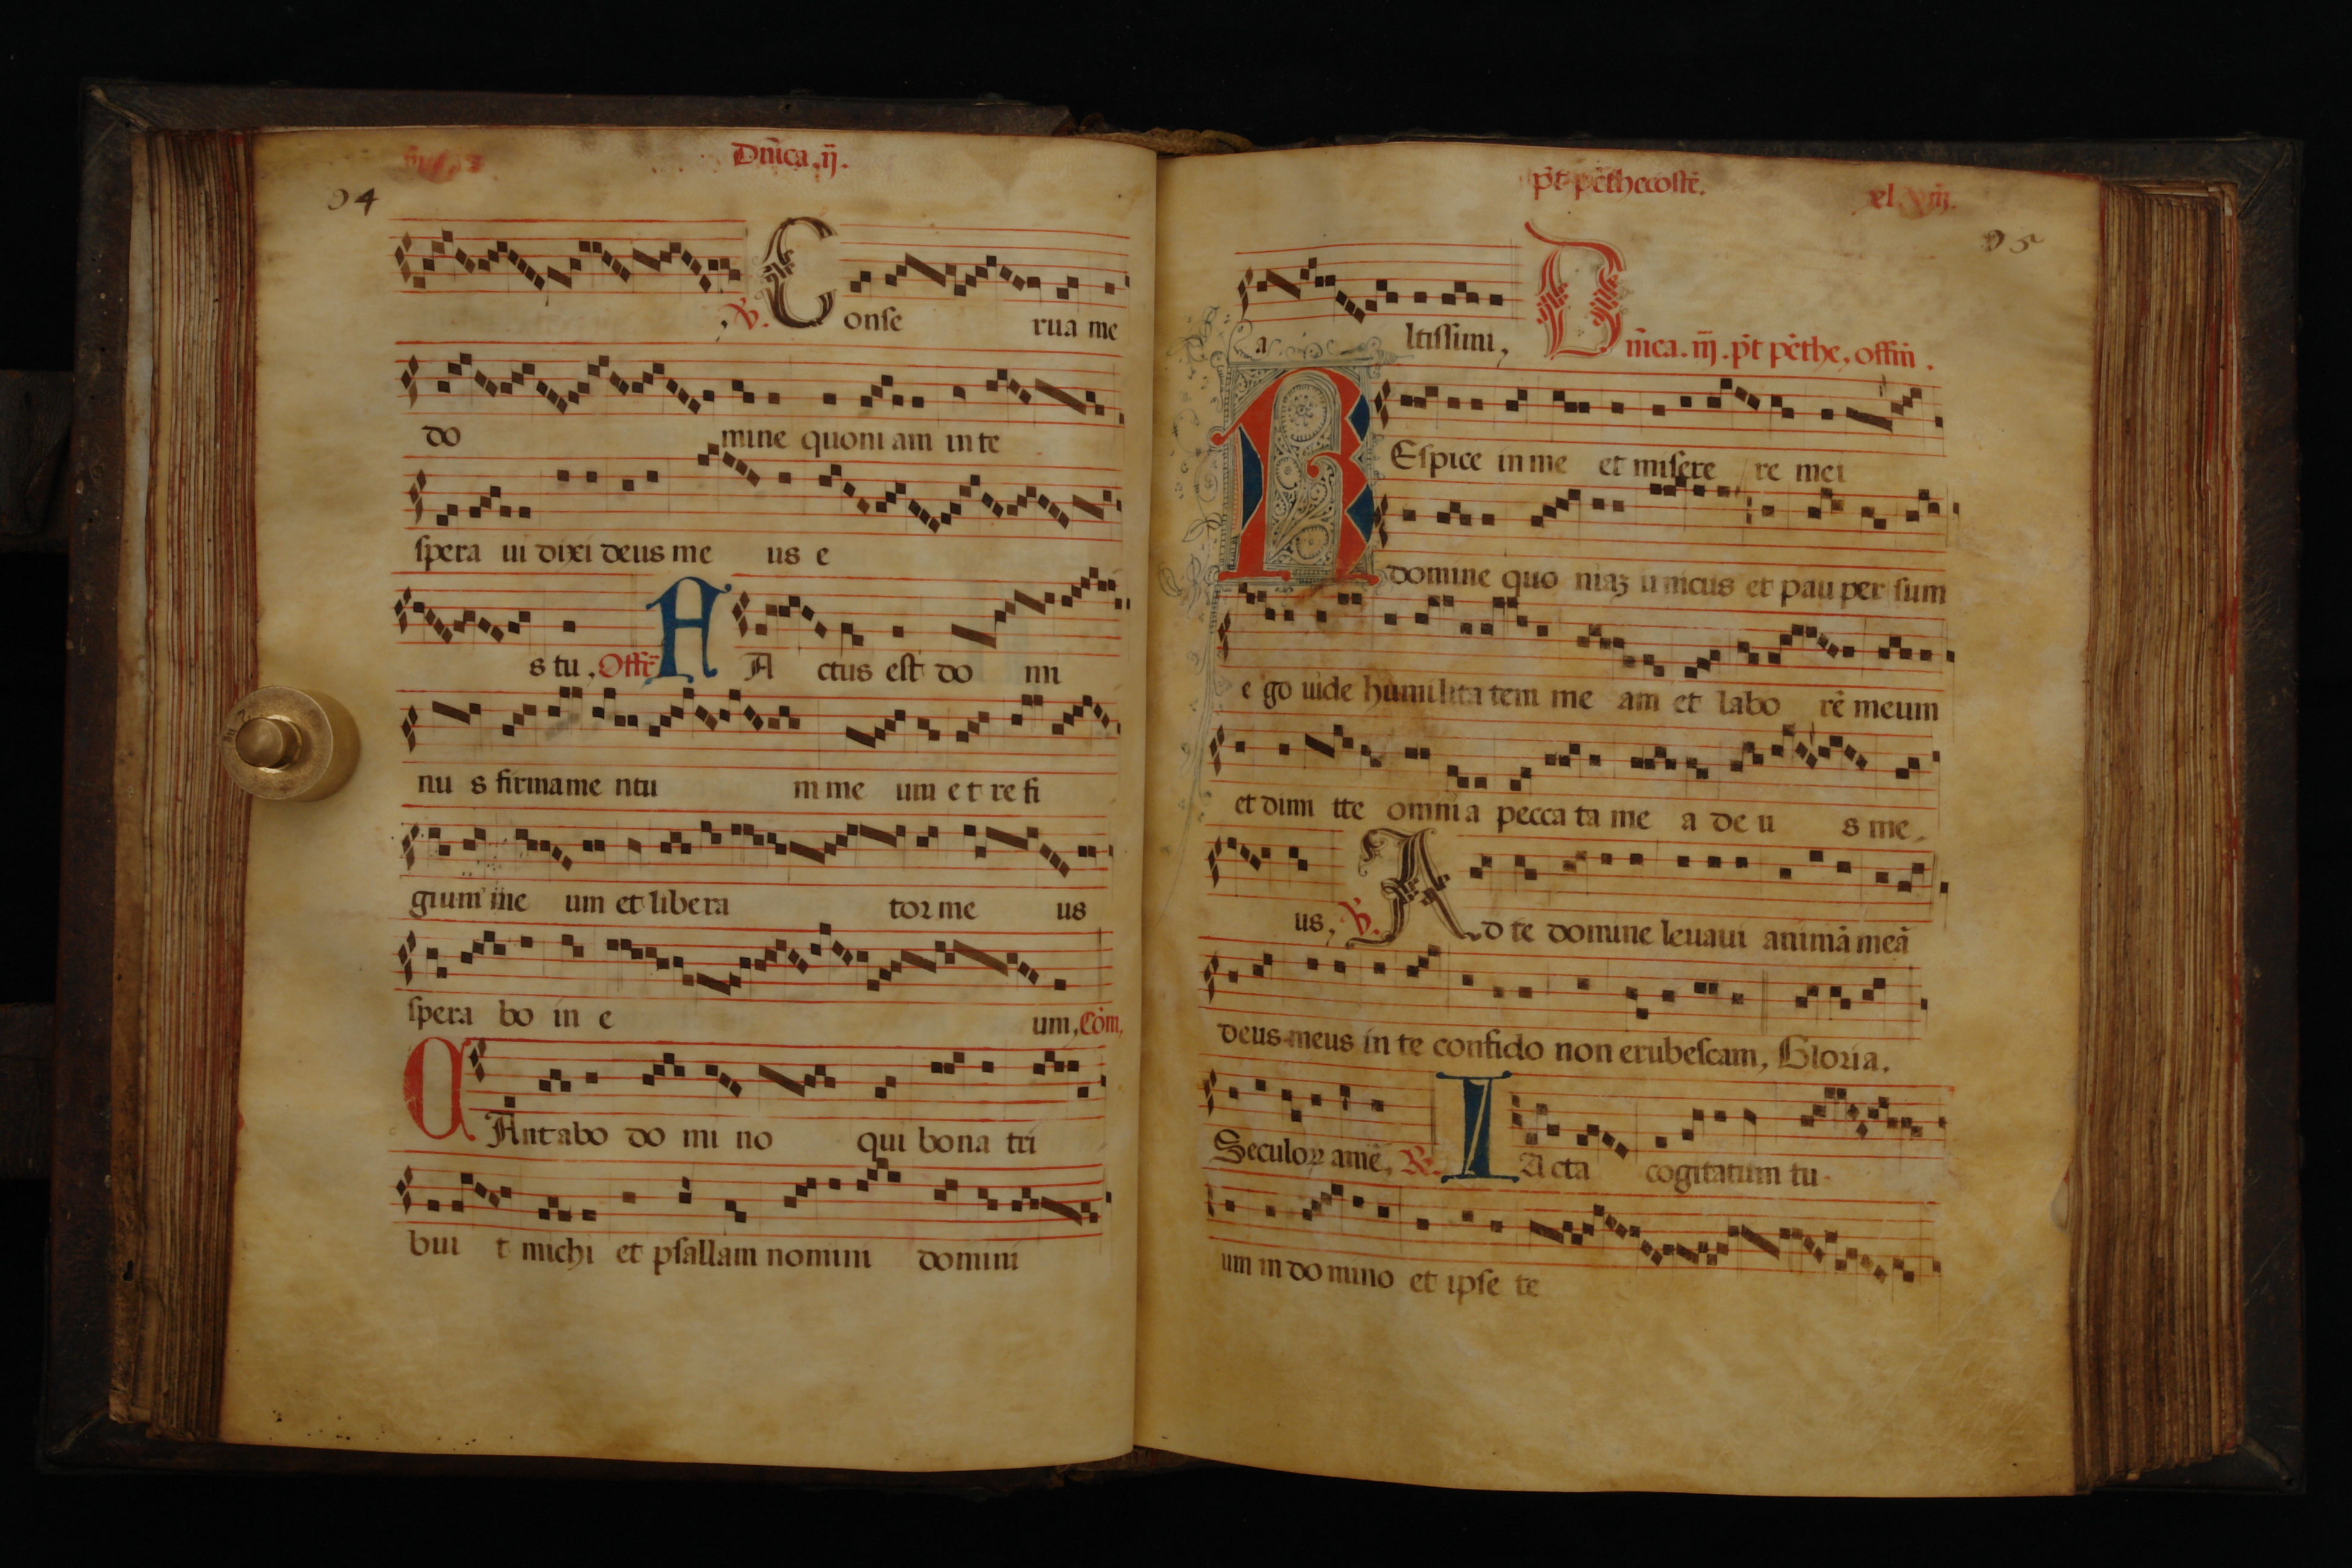 Dn̄ica .ij.
94
, ℣. Conſe rua me
do mine quoni am in te
ſpera ui dixi deus me us e
s tu . Offi FA ctus eſt do mi
nu s firmame ntu m me um e t re fi
gium me um et libera tor me us
ſpera bo in e um, Com̄,
CAntabo do mi no qui bona tri
bui t michi et pſallam nomini domini
p̄t pēthecoſtē.
95
a ltiſſimi,
Dn̄ica . iij . p̄t pēthe . offm̄ .
REſpice in me et miſere re mei
domine quo niaʒ unicus et pau per ſum
e go uide humilita tem me am et labo rē meum
et dimi tte omni a pecca ta me a de u s me
us, ℣. Ad te domine leuaui animā meā
deus meus in te confido non erubeſcam, Gloria.
Seculoꝝ amē, ℟. IActa cogitatum tu
um in do mino et ipſe te